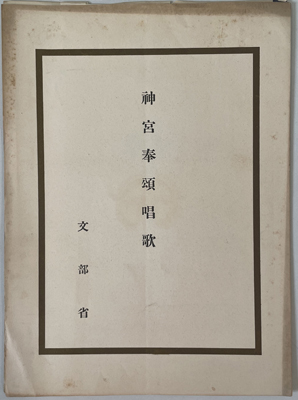 神宮奉頌唱歌
文部省